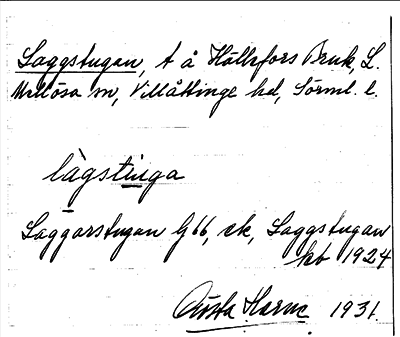 Laggstugan, t å Hällefors Bruk, L.
Mellösa sn, Villåttinge hd, Sörml. l.
làgstuga
Laggarstugan G66, ek, Laggstugan
kb 1924
Gösta Harne 1931.